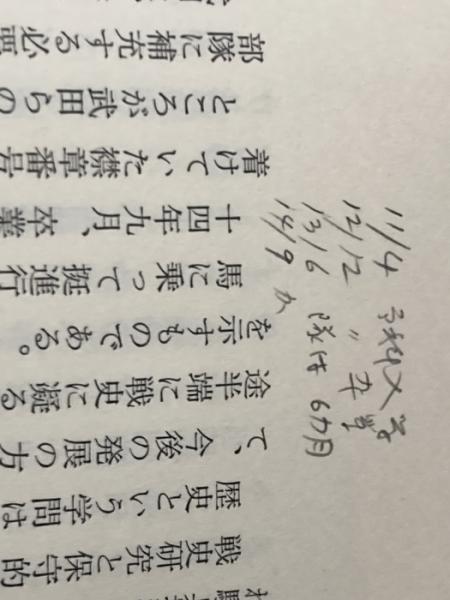 11/4 予科入学
12/12 〃 卒業
13/6 隊付 6カ月
14/9
戦史研究と保守的
歴史という学問は
て、今後の発展の方
途半端に戦史に凝る
を示すものである。
馬に乗って挺進行
十四年九月、卒業
着けていた襟章番号
ところが武田らの
部隊に補充する必要